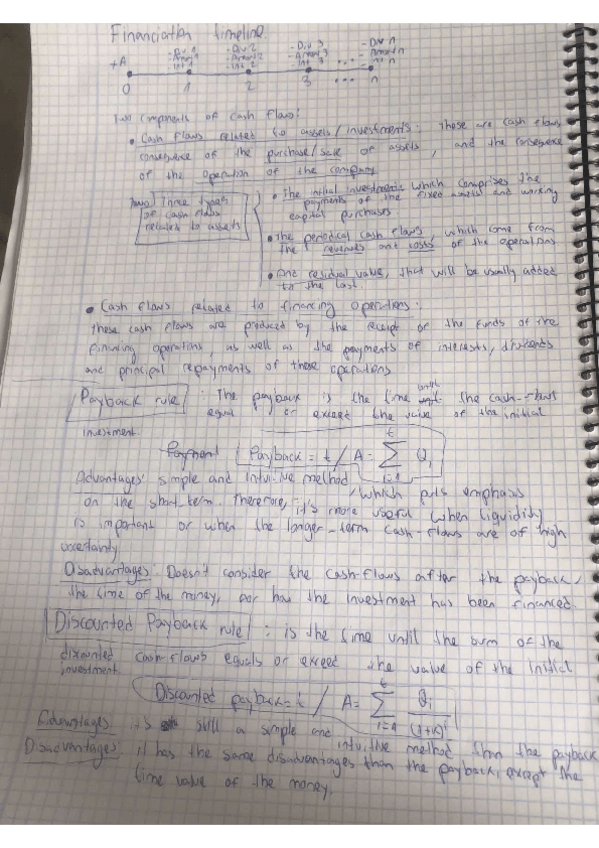 Financiation timeline.
+A
- Div 1 - Div 2 - Div 3 - Div n
- Amort 1 - Amort 2 - Amort 3 - Amort n
- Int 1 - Int 2 - Int 3 - Int n
0 1 2 3 ... n
Two components of cash flows:
• Cash flows related to assets / investments: These are cash flows
consequence of the purchase/sale of assets, and the consequence
of the operation of the company
Three types
of cash flows
related to assets
• The initial investments which comprises the
payments of the fixed assets and working
capital purchases
• The periodical cash flows, which come from
the revenues and costs of the operations
• And residual value, that will be usually added
to the last.
• Cash flows related to financing operations:
These cash flows are produced by the receipt of the funds of the
financing operations, as well as the payments of interests, dividends
and principal repayments of these operations
Payback rule : The payback is the time until the cash-flows
equal or exceed the value of the initial
investment.
Payment Payback = t / A = t Σ i=1 Qi
Advantages: simple and intuitive method, which puts emphasis
on the short-term. Therefore, it's more useful when liquidity
is important or when the longer-term cash-flows are of high
uncertainty
Disadvantages: Doesn't consider the cash-flows after the payback,
the time of the money, nor how the investment has been financed.
Discounted Payback rule : is the time until the sum of the
discounted cash-flows equals or exceed the value of the initial
investment.
Discounted payback = t / A = t Σ i=1 Qi/(1+K)^i
Advantages: it's still a simple and intuitive method than the payback
Disadvantages: it has the same disadvantages than the payback, except the
time value of the money.